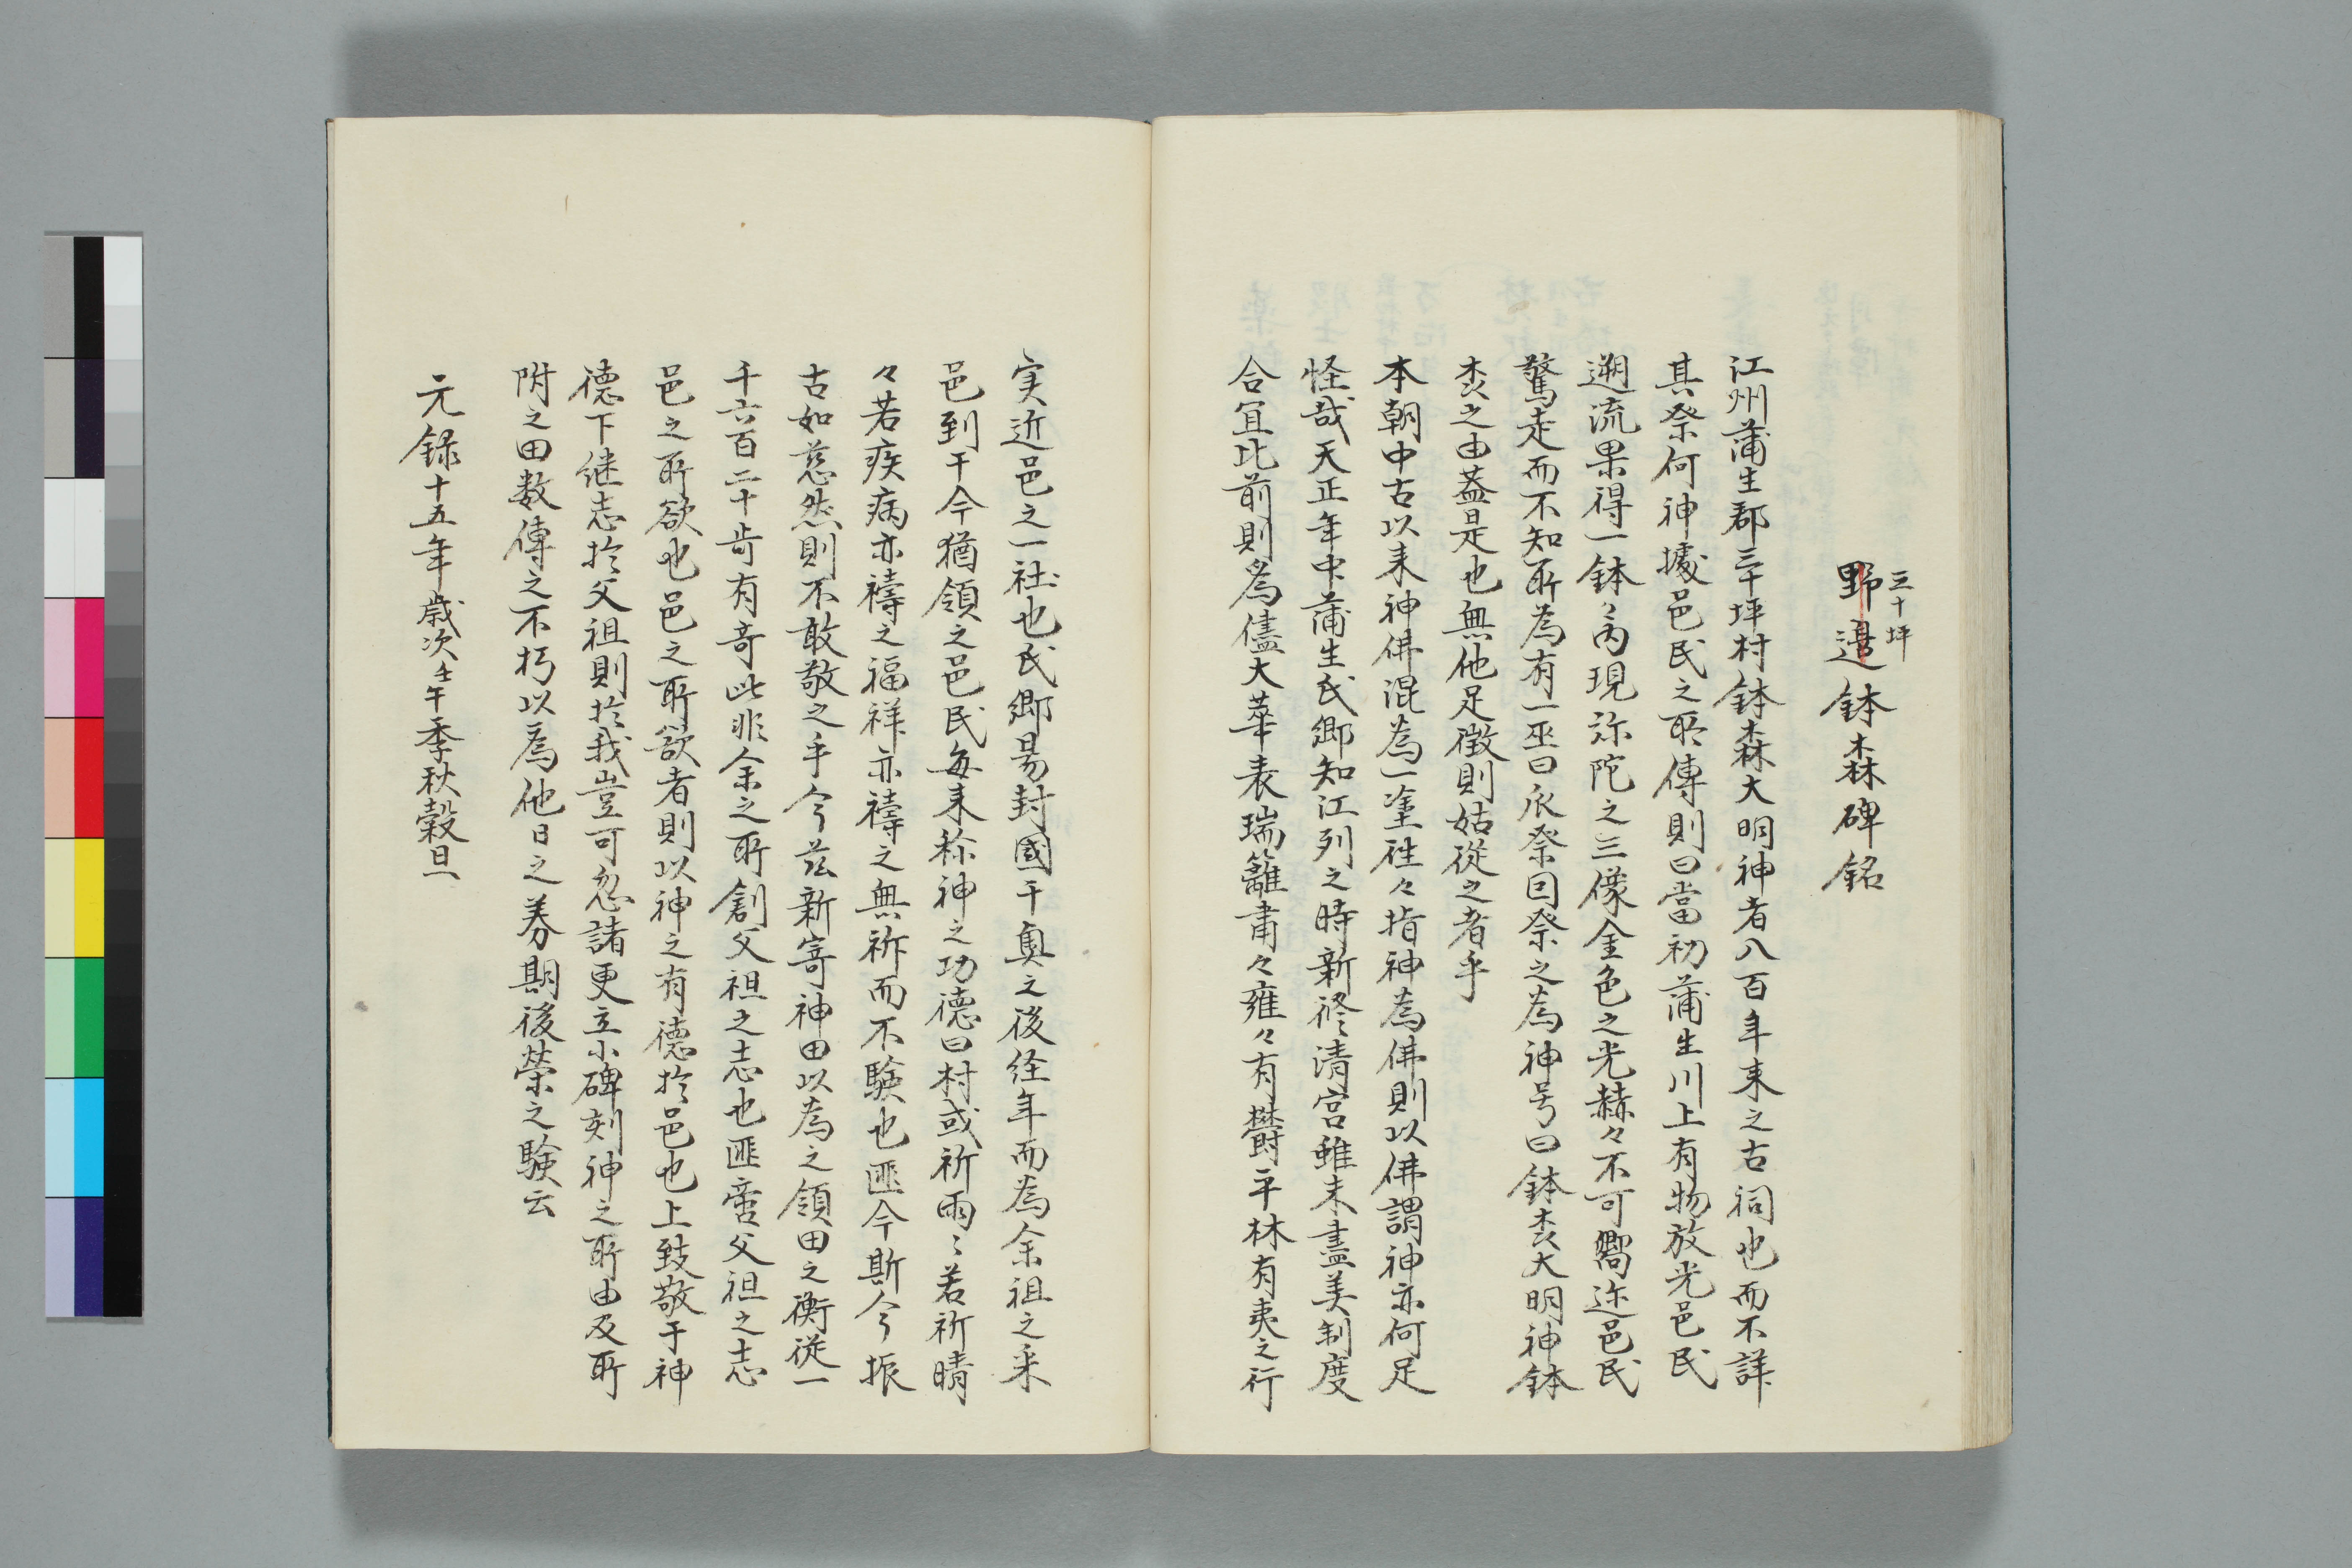 三十坪
野邉鉢森碑銘
江州蒲生郡三十坪村鉢森大明神者八百年来之古祠也而不詳
其祭何神據邑民之所傳則曰當初蒲生川上有物放光邑民
遡流果得一鉢々内現弥陀之三像金色之光赫々不可嚮迩邑民
驚走而不知所為有一巫曰祭因祭之為神号曰鉢大明神鉢
之由蓋是也無他足徴則姑從之者乎
本朝中古以来神佛混為一塗往々指神為佛則以佛謂神亦何足
怪哉天正年中蒲生氏郷知江列之時新修清宮雖未盡美制度
合宜比前則為儘大華表瑞籬肅々雍々有欝平林有夷之行
実近邑之一社也氏郷易封國于奥之後経年而為余祖之采
邑到于今猶領之邑民毎来称神之功德曰村或祈雨々若祈晴
々若疾病亦禱之福祥亦禱之無祈而不験也匪今斯今振
古如慈然則不敢敬之乎今茲新寄神田以為之領田之衡從一
千六百二十歩有竒此非余之所創父祖之志也匪啻父祖之志
邑之所欲也邑之所欲者則以神之有德於邑也上致敬于神
德下継志於父祖則於我豈可忽諸更立小碑刻神之所由及所
附之田数傳之不朽以為他日之券期後榮之験云
元録十五年歳次壬午季秋穀旦